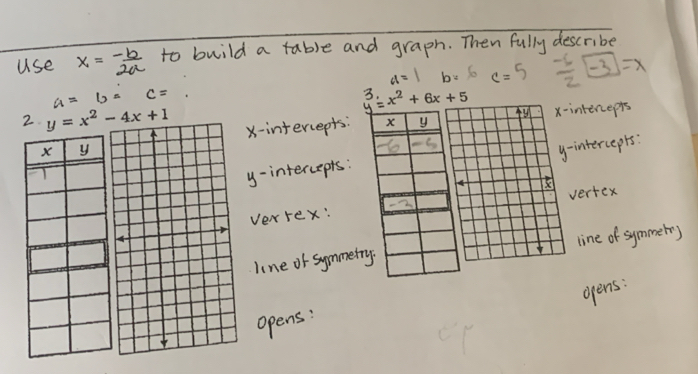 Use x = -b/2a to build a table and graph. Then fully describe
a= b= c= .
a=1 b=6 c=5 -6/2 -3 =x
2. y = x² − 4x + 1
3. y = x² + 6x + 5
x y
-1
x-intercepts:
y-intercepts:
vertex:
line of symmetry:
opens:
x y
-6 -5
-3
y
x
x-intercepts
y-intercepts:
vertex
line of symmetry
opens: